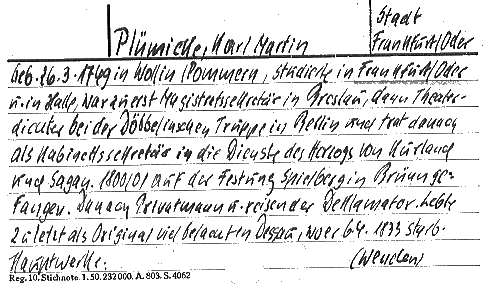 Stadt
Plümicke, Karl Martin
Frankfurt/Oder
geb. 26.3.1749 in Wollin /Pommern, studierte in Frankfurt/Oder
u. in Halle, war zuerst Magistratssekretär in Breslau, dann Theater-
dichter bei der Döbbelinschen Truppe in Berlin und trat danach
als Kabinettssekretär in die Dienste des Herzogs von Kurland
und Sagan. 1800/01 auf der Festung Spielberg in Brünn ge-
fangen. Danach Privatmann u. reisender Deklamator. Lebte
zuletzt als Original viel belacht in Dessau, wo er 6.4. 1833 starb.
Hauptwerke: (wenden)
Reg. 10. Stichnote. 1. 50. 232000. A. 803. S. 4062